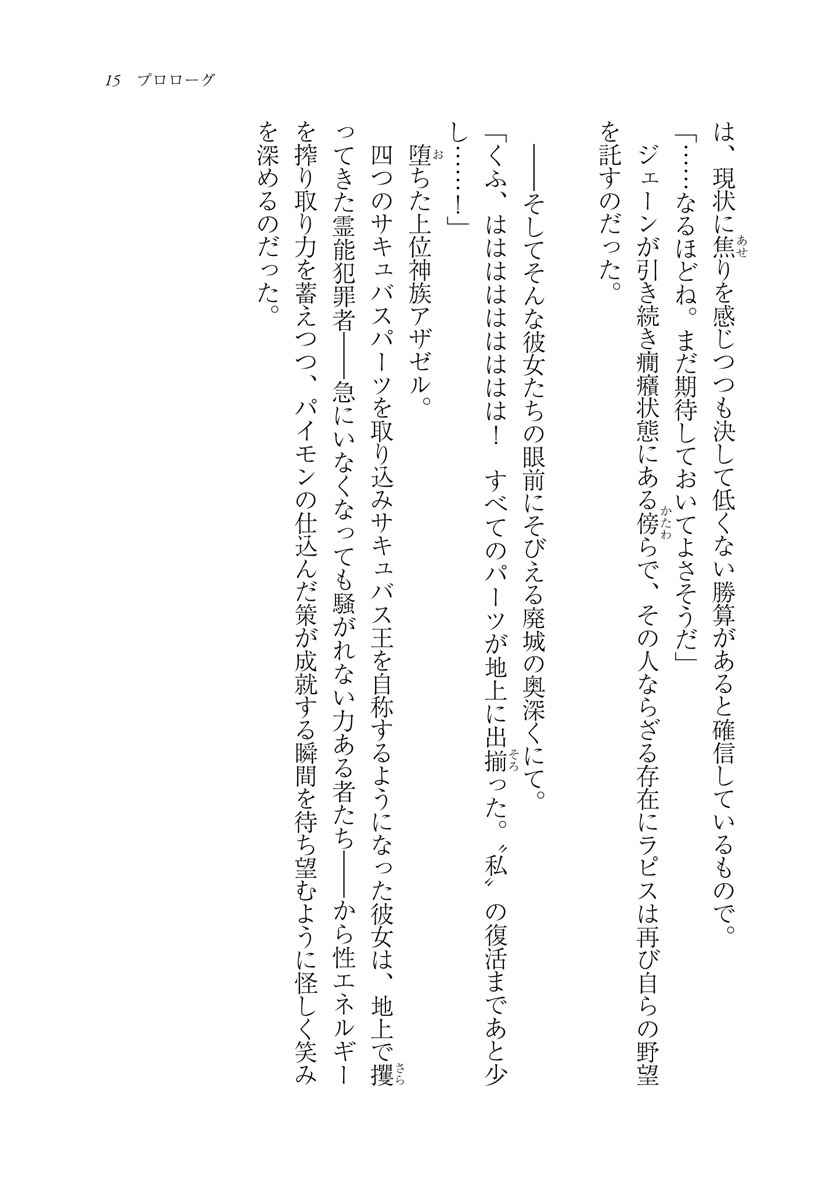 15　プロローグ
は、現状に焦りを感じつつも決して低くない勝算があると確信しているもので。
「……なるほどね。まだ期待しておいてよさそうだ」
　ジェーンが引き続き癇癪状態にある傍らで、その人ならざる存在にラピスは再び自らの野望
を託すのだった。
　――そしてそんな彼女たちの眼前にそびえる廃城の奥深くにて。
「くふ、はははははははは！　すべてのパーツが地上に出揃った。〝私〟の復活まであと少
し……！」
　堕ちた上位神族アザゼル。
　四つのサキュバスパーツを取り込みサキュバス王を自称するようになった彼女は、地上で攫
ってきた霊能犯罪者――急にいなくなっても騒がれない力ある者たち――から性エネルギー
を搾り取り力を蓄えつつ、パイモンの仕込んだ策が成就する瞬間を待ち望むように怪しく笑み
を深めるのだった。